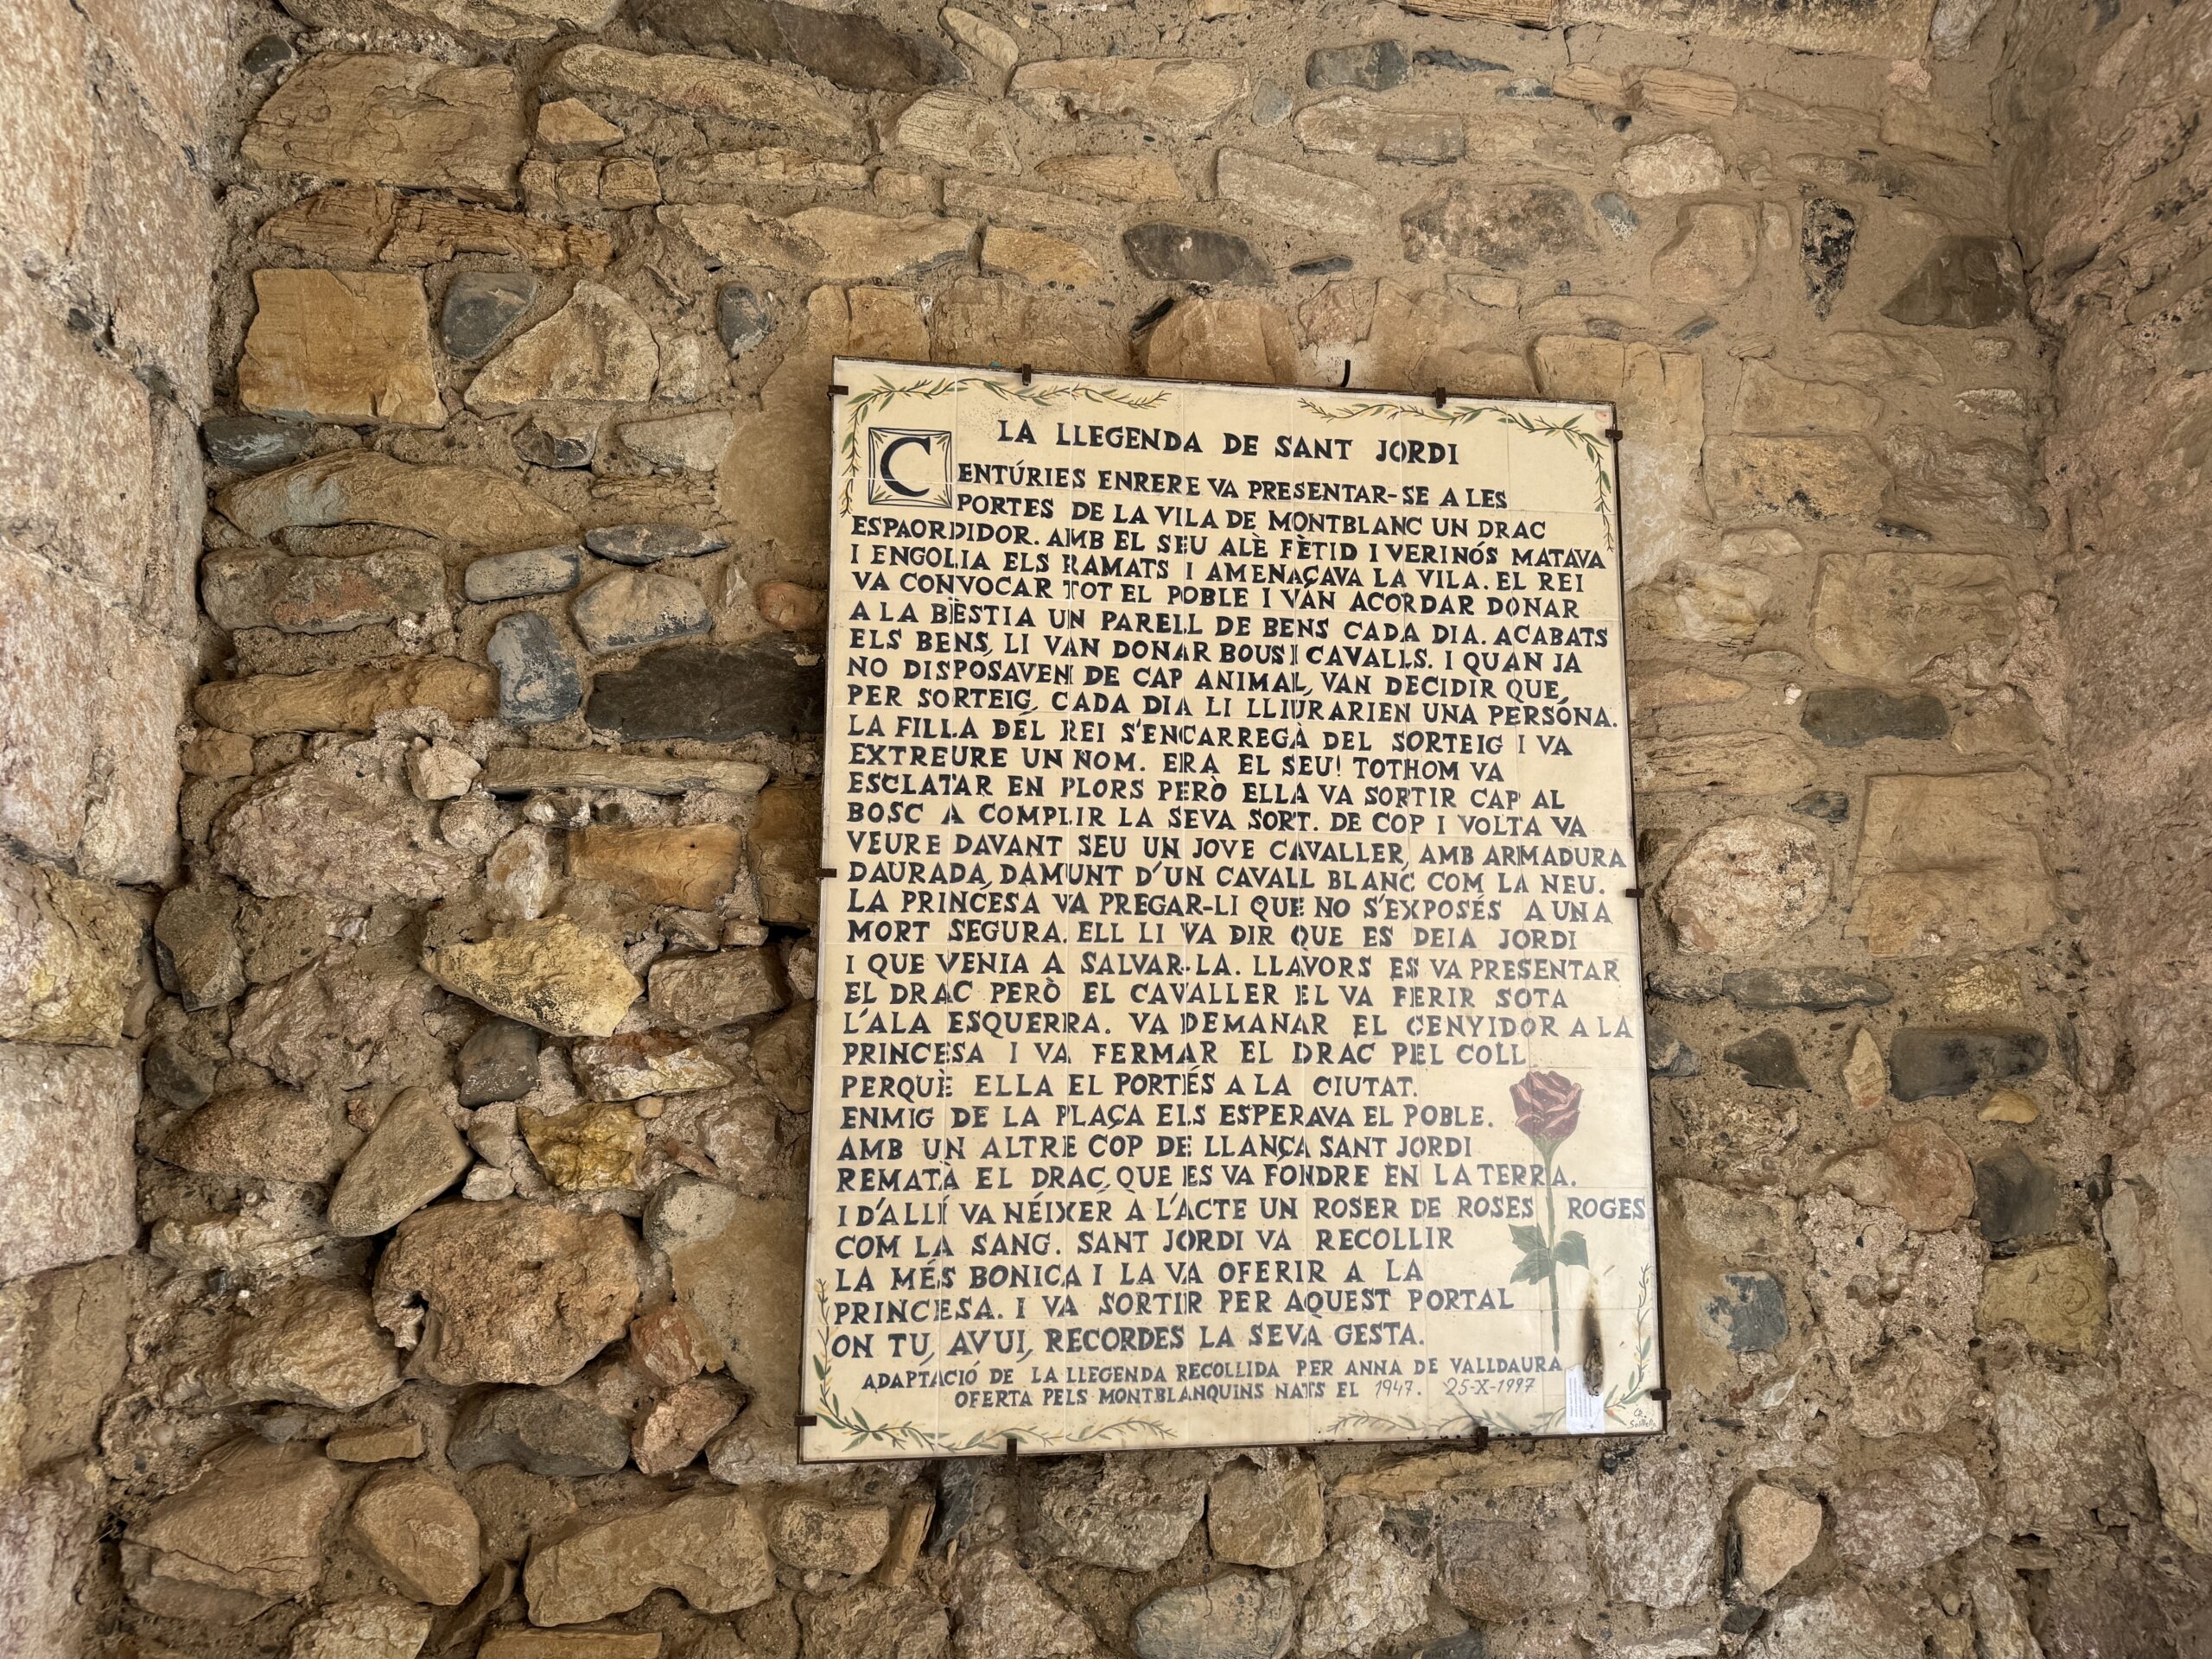 LA LLEGENDA DE SANT JORDI
CENTÚRIES ENRERE VA PRESENTAR-SE A LES
PORTES DE LA VILA DE MONTBLANC UN DRAC
ESPAORDIDOR. AMB EL SEU ALÈ FÈTID I VERINÓS MATAVA
I ENGOLIA ELS RAMATS I AMENAÇAVA LA VILA. EL REI
VA CONVOCAR TOT EL POBLE I VAN ACORDAR DONAR
A LA BÈSTIA UN PARELL DE BENS CADA DIA. ACABATS
ELS BENS, LI VAN DONAR BOUS I CAVALLS. I QUAN JA
NO DISPOSAVEN DE CAP ANIMAL, VAN DECIDIR QUE,
PER SORTEIG, CADA DIA LI LLIURARIEN UNA PERSONA.
LA FILLA DEL REI S'ENCARREGÀ DEL SORTEIG I VA
EXTREURE UN NOM. ERA EL SEU! TOTHOM VA
ESCLATAR EN PLORS PERÒ ELLA VA SORTIR CAP AL
BOSC A COMPLIR LA SEVA SORT. DE COP I VOLTA VA
VEURE DAVANT SEU UN JOVE CAVALLER, AMB ARMADURA
DAURADA, DAMUNT D'UN CAVALL BLANC COM LA NEU.
LA PRINCESA VA PREGAR-LI QUE NO S'EXPOSÉS A UNA
MORT SEGURA. ELL LI VA DIR QUE ES DEIA JORDI
I QUE VENIA A SALVAR-LA. LLAVORS ES VA PRESENTAR
EL DRAC PERÒ EL CAVALLER EL VA FERIR SOTA
L'ALA ESQUERRA. VA DEMANAR EL CENYIDOR A LA
PRINCESA I VA FERMAR EL DRAC PEL COLL
PERQUÈ ELLA EL PORTÉS A LA CIUTAT.
ENMIG DE LA PLAÇA ELS ESPERAVA EL POBLE.
AMB UN ALTRE COP DE LLANÇA SANT JORDI
REMATÀ EL DRAC, QUE ES VA FONDRE EN LA TERRA.
I D'ALLÍ VA NÉIXER A L'ACTE UN ROSER DE ROSES ROGES
COM LA SANG. SANT JORDI VA RECOLLIR
LA MÉS BONICA I LA VA OFERIR A LA
PRINCESA. I VA SORTIR PER AQUEST PORTAL
ON TU, AVUI, RECORDES LA SEVA GESTA.
ADAPTACIÓ DE LA LLEGENDA RECOLLIDA PER ANNA DE VALLDAURA
OFERTA PELS MONTBLANQUINS NATS EL 1947. 25-X-1997